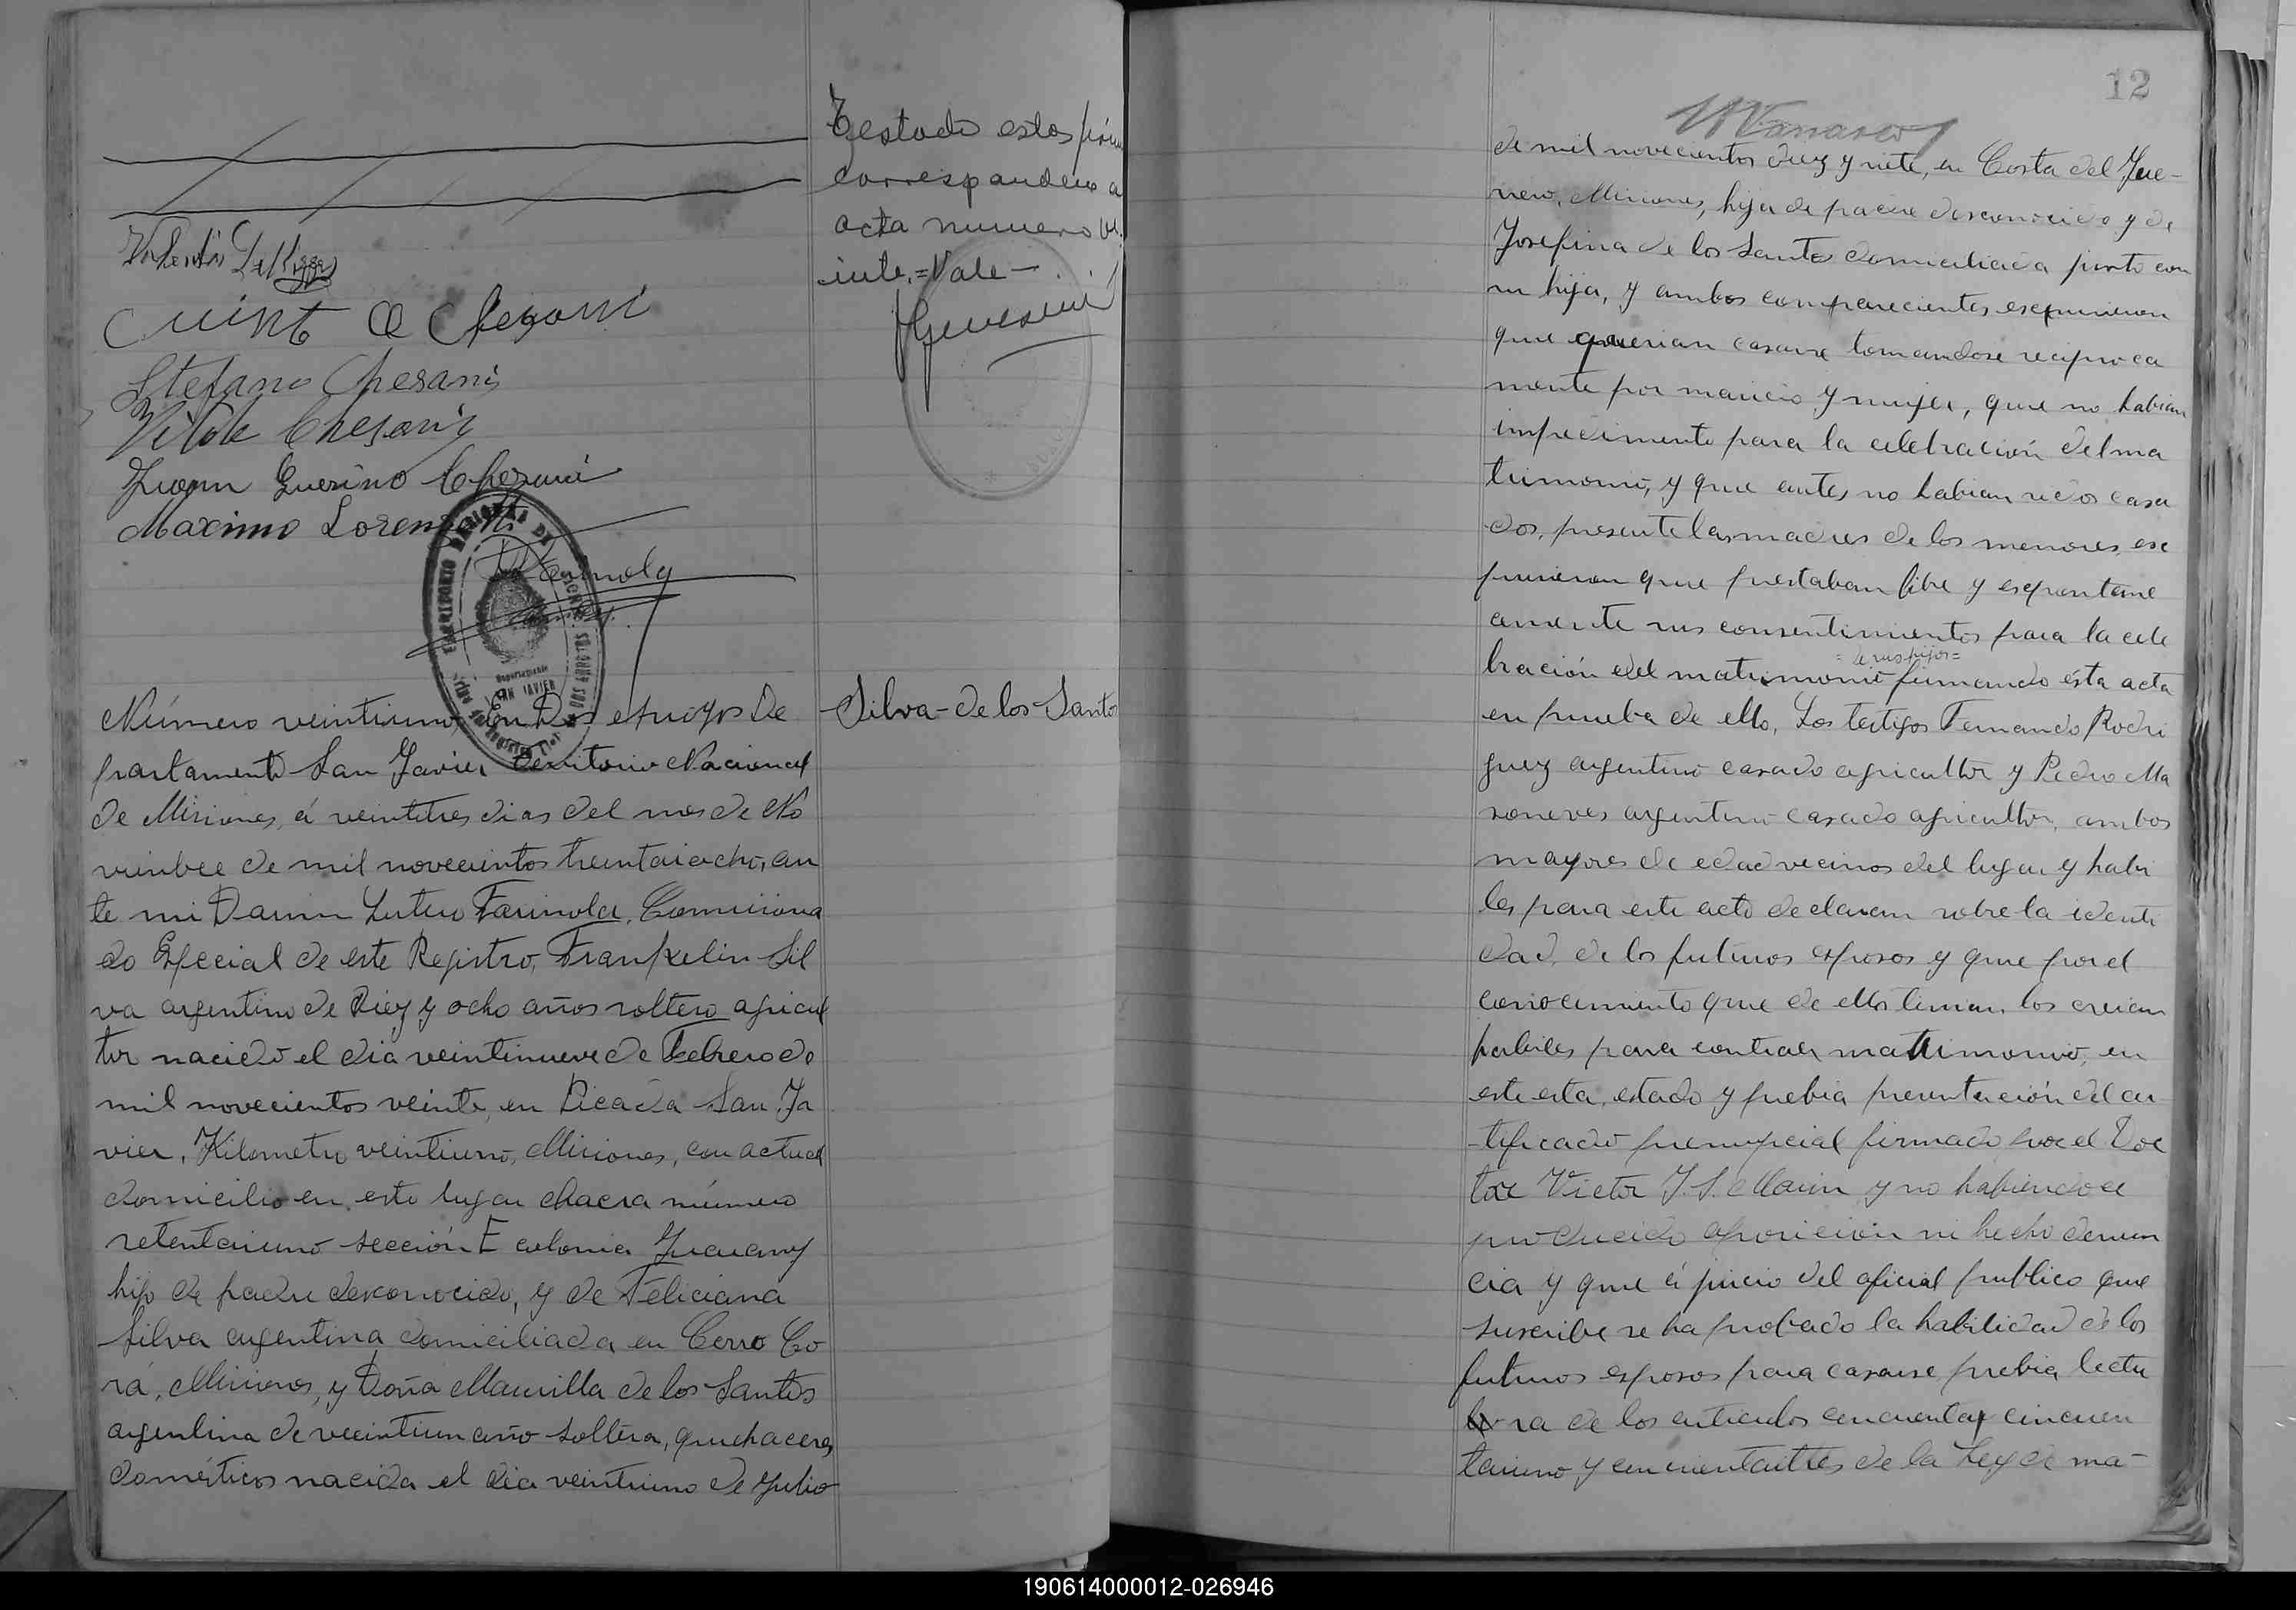 Testado estas
correspandeno a
acta numero
inte.=Vale-.
Quinto A Chesani
Stefano Chesani
Vitale Chesani
Juan Guerino Chesani
Maximo Lorenzatti
Farinola
SAN JAVIER
Silva-de los Santos
Número veintiuno, En Dos arroyos De
partamento San Javier Territorio Nacional
de Misiones, á veintitres dias del mes de No
viembre de mil novecientos treintaiocho, an
te mi Farinola, Comisiona
do Especial de este Registro, Frankelin Sil
va argentino de Diez y ocho años soltero agricul
tor nacido el dia veintinueve de Febrero de
mil novecientos veinte, en Picada San Ja
vier, Kilometro veintiuno, Misiones, con actual
domicilio en este lugar chacra número
setentaiuno sección E colonia
hijo de padre desconocido, y de Feliciana
Silva argentina domiciliada en Cerro Co
rá, Misiones, y Doña Maurilla de los Santos
argentina de veeintiun año soltera, quehaceres
dométicos nacida el dia veintiuno de Julio
12
de mil novecientos diez y siete, en Costa del
Misiones, hija de padre desconocido y de
Josefina de los Santos domiciliada junto con
su hija, y ambos comparecientes esepusieron
que querian casarse tomandose reciproca
mente por marido y mujer, que no habian
impedimento para la celebración del ma
trimonio, y que antes no habian sidos casa
dos, presente las madres de los menores, ese
pusieron que prestaban libre y esepontane
amente sus consentimientos para la cele
=de sus hijos=
bración edel matrimonio firmando ésta acta
en prueba de ello, Los testigos Fernando Rodri
guez argentino casado agricultor y Pedro Ma
argentino casado agricultor, ambos
mayores de edad vecinos del lugar y habi
les para este acto declaran sobre la identi
dad de los futuros esposos y que por el
conocimiento que de ellos tenian, los creian
habiles para contraer matrimonio, en
este esta, estado y prebia presentación del cer
-tificado prenupcial firmado por el Doc
tor Victor J. S. Marin y no habiendose
producido oposición ni hecho denun
cia y que á juicio del oficial publico que
suscribe se ha probado la habilidad de los
futuros esposos para casarse prebia lectu
ra de los articulos cincuenta, cincuen
taiuno y cincuentaitres de la Ley de ma-
190614000012-026946